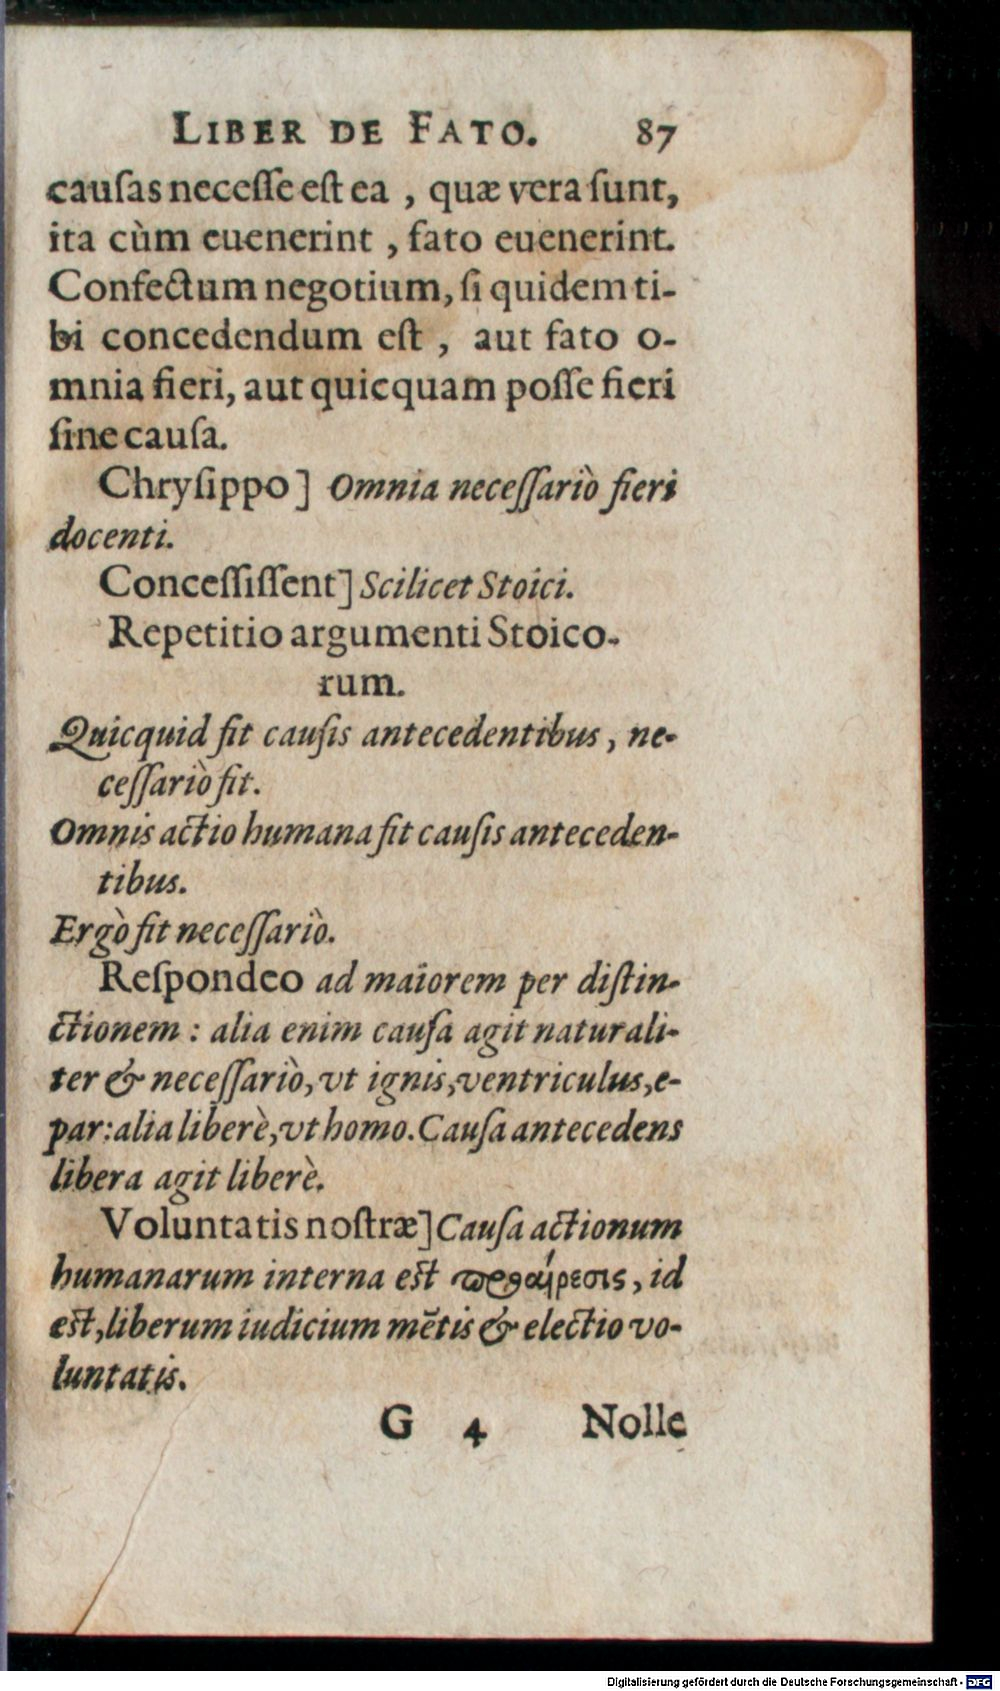 LIBER DE FATO. 87
cauſas neceſſe eſt ea , quæ vera ſunt,
ita cùm euenerint , fato euenerint.
Confectum negotium, ſi quidem ti-
bi concedendum eſt , aut fato o-
mnia fieri, aut quicquam poſſe fieri
ſine cauſa.
Chryſippo] Omnia neceſſariò fieri
docenti.
Conceſſiſſent] Scilicet Stoici.
Repetitio argumenti Stoico-
rum.
Quicquid fit cauſis antecedentibus, ne-
ceſſariò fit.
Omnis actio humana fit cauſis anteceden-
tibus.
Ergò fit neceſſariò.
Reſpondeo ad maiorem per diſtin-
ctionem : alia enim cauſa agit naturali-
ter & neceſſariò, vt ignis, ventriculus, e-
par: alia liberè, vt homo. Cauſa antecedens
libera agit liberè.
Voluntatis noſtræ] Cauſa actionum
humanarum interna eſt προαίρεσις, id
eſt, liberum iudicium mētis & electio vo-
luntatis.
G 4 Nolle
Digitalisierung gefördert durch die Deutsche Forschungsgemeinschaft - DFG